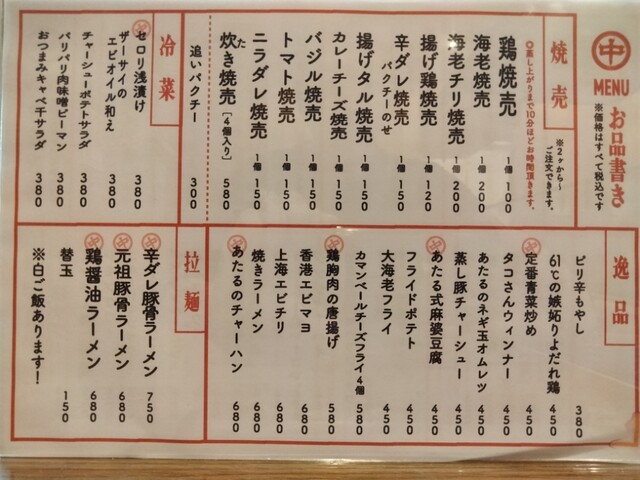 中
MENU
お品書き
※価格はすべて税込です
焼売
※2ヶから〜
ご注文できます。
◎蒸し上がりまで10分ほどお時間頂きます。
鶏焼売 1個 100
海老焼売 1個 200
海老チリ焼売 1個 200
揚げ鶏焼売 1個 120
辛ダレ焼売 パクチーのせ 1個 150
揚げタル焼売 1個 150
カレーチーズ焼売 1個 150
バジル焼売 1個 150
トマト焼売 1個 150
ニラダレ焼売 1個 150
炊き焼売 [4個入り] 580
た
追いパクチー 300
冷菜
中 セロリ浅漬け 380
ザーサイの
エビオイル和え 380
チャーシューポテトサラダ 380
パリパリ肉味噌ピーマン 380
おつまみキャベ千サラダ 380
逸品
ピリ辛もやし 380
61℃の嫉妬りよだれ鶏 450
中 定番青菜炒め 450
タコさんウィンナー 450
あたるのネギ玉オムレツ 450
蒸し豚チャーシュー 450
中 あたる式麻婆豆腐 450
フライドポテト 450
大海老フライ 450
カマンベールチーズフライ4個 580
中 鶏胸肉の唐揚げ 580
香港エビマヨ 680
上海エビチリ 680
焼きラーメン 680
中 あたるのチャーハン 680
拉麺
中 辛ダレ豚骨ラーメン 750
中 元祖豚骨ラーメン 680
中 鶏醤油ラーメン 680
替玉 150
※白ご飯あります!